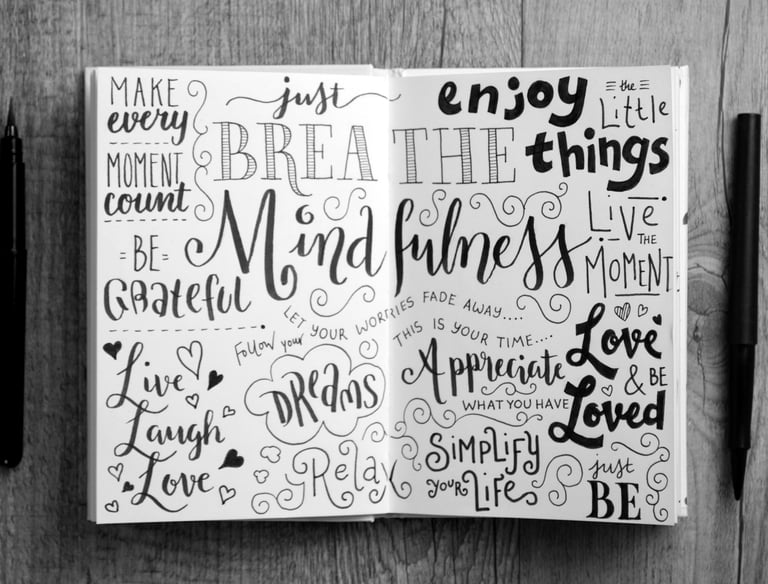 MAKE
every
MOMENT
count
=BE=
GRateful
just
BREATHE
Mindfulness
enjoy
the
Little
things
LiVe
THE
MOMENT
LET YOUR WORRIES FADE AWAY....
THIS IS YOUR TIME....
Follow your
DReams
Live
Laugh
Love
Appreciate
WHAT YOU HAVE
Love
& BE
Loved
Relax
SiMPLiFY
YOUR LiFe
just
BE